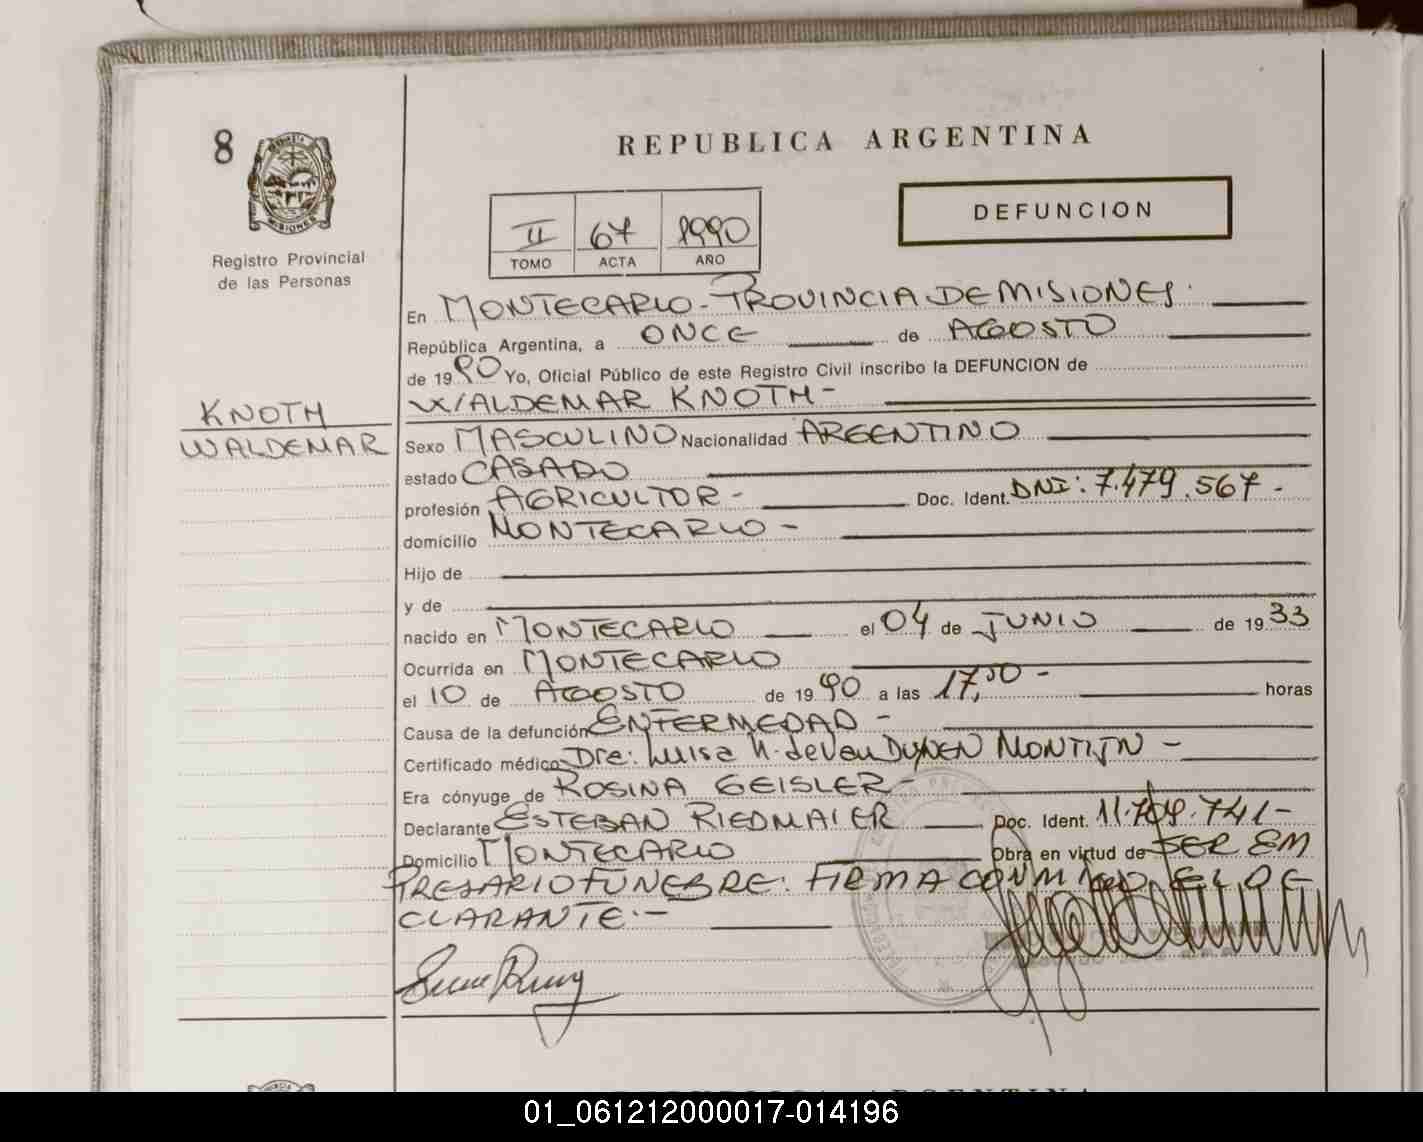 8
MISIONES
Registro Provincial
de las Personas
REPUBLICA ARGENTINA
II 67 1990
TOMO ACTA AÑO
DEFUNCION
En MONTECARLO - PROVINCIA DE MISIONES.
República Argentina, a ONCE de AGOSTO
de 1990 Yo, Oficial Público de este Registro Civil inscribo la DEFUNCION de
WALDEMAR KNOTH -
KNOTH
WALDEMAR
Sexo MASCULINO Nacionalidad ARGENTINO
estado CASADO
profesión AGRICULTOR - Doc. Ident. DNI: 7.479.567.-
domicilio MONTECARLO -
Hijo de
y de
nacido en MONTECARLO el 04 de JUNIO de 1933
Ocurrida en MONTECARLO
el 10 de AGOSTO de 1990 a las 17,50 - horas
Causa de la defunción ENFERMEDAD -
Certificado médico Dra: Luisa N. de Van DUYNEN MONTIJN -
Era cónyuge de ROSINA GEISLER -
Declarante ESTEBAN RIEDMAIER Doc. Ident. 11.709.741 -
Domicilio MONTECARLO Obra en virtud de SER EM
PRESARIO FUNEBRE. FIRMA CONMIGO EL DE
CLARANTE.-
01_061212000017-014196